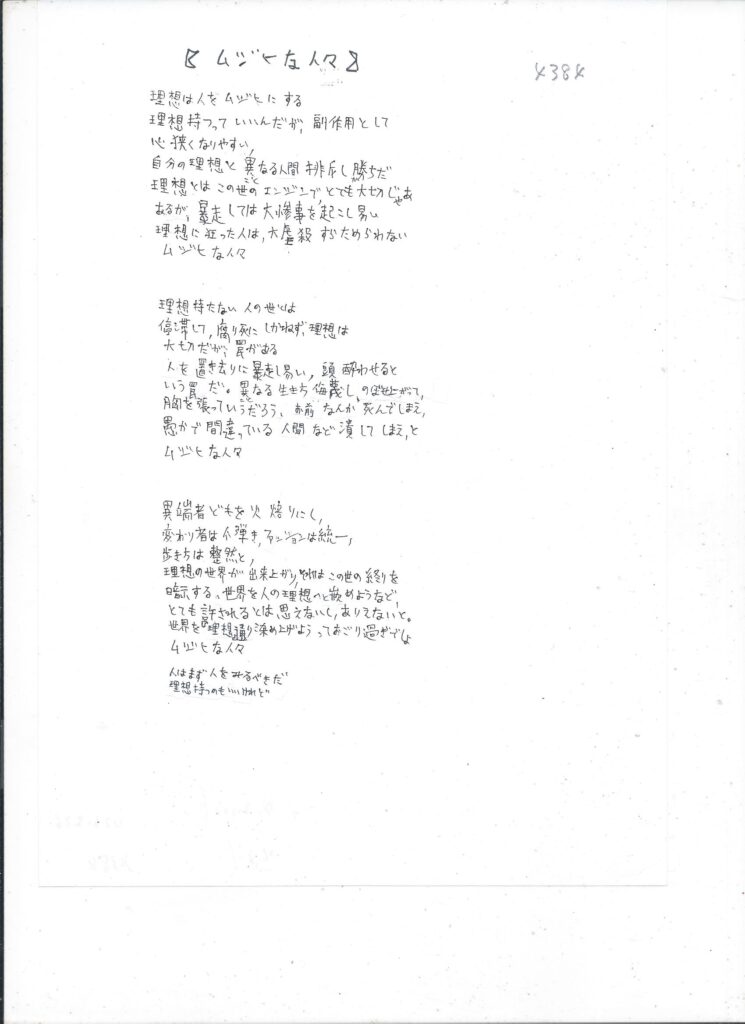 【ムジヒな人々】
4384
理想は人をムジヒにする
理想持つっていいんだが、副作用として
心狭くなりやすい、
自分の理想と異なる人間排斥し勝ちだ
理想とはこの世のエンジンで、とても大切じゃあ
あるが、暴走しては大惨事を起こし易い
理想に狂った人は、大虐殺すらためらわない
ムジヒな人々
理想持たない人の世とは
停滞して、腐り死にしかねず、理想は
大切だが、罠がある
人を置き去りに暴走し易い、頭酔わせると
いう罠だ。異なる生き方侮蔑し、のぼせ上がって、
胸を張っていうだろう、お前なんか、死んでしまえ、
愚かで間違っている人間など潰してしまえ、と
ムジヒな人々
異端者どもを火焙りにし、
変わり者は爪弾き、ファッションは統一、
歩き方は整然と、
理想の世界が出来上がり、それはこの世の終りを
暗示する、世界を人の理想へと嵌めようなど、
とても許されるとは思えないし、ありえないと。
世界を理想通り染め上げようっておごり過ぎでしょ
ムジヒな人々
人はまず人をみるべきだ
理想持つのもいいけれど